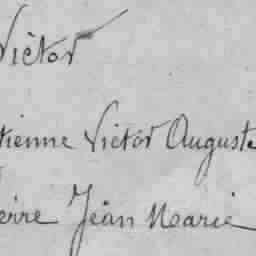 Victor
tienne Victor Auguste
erre Jean Marie